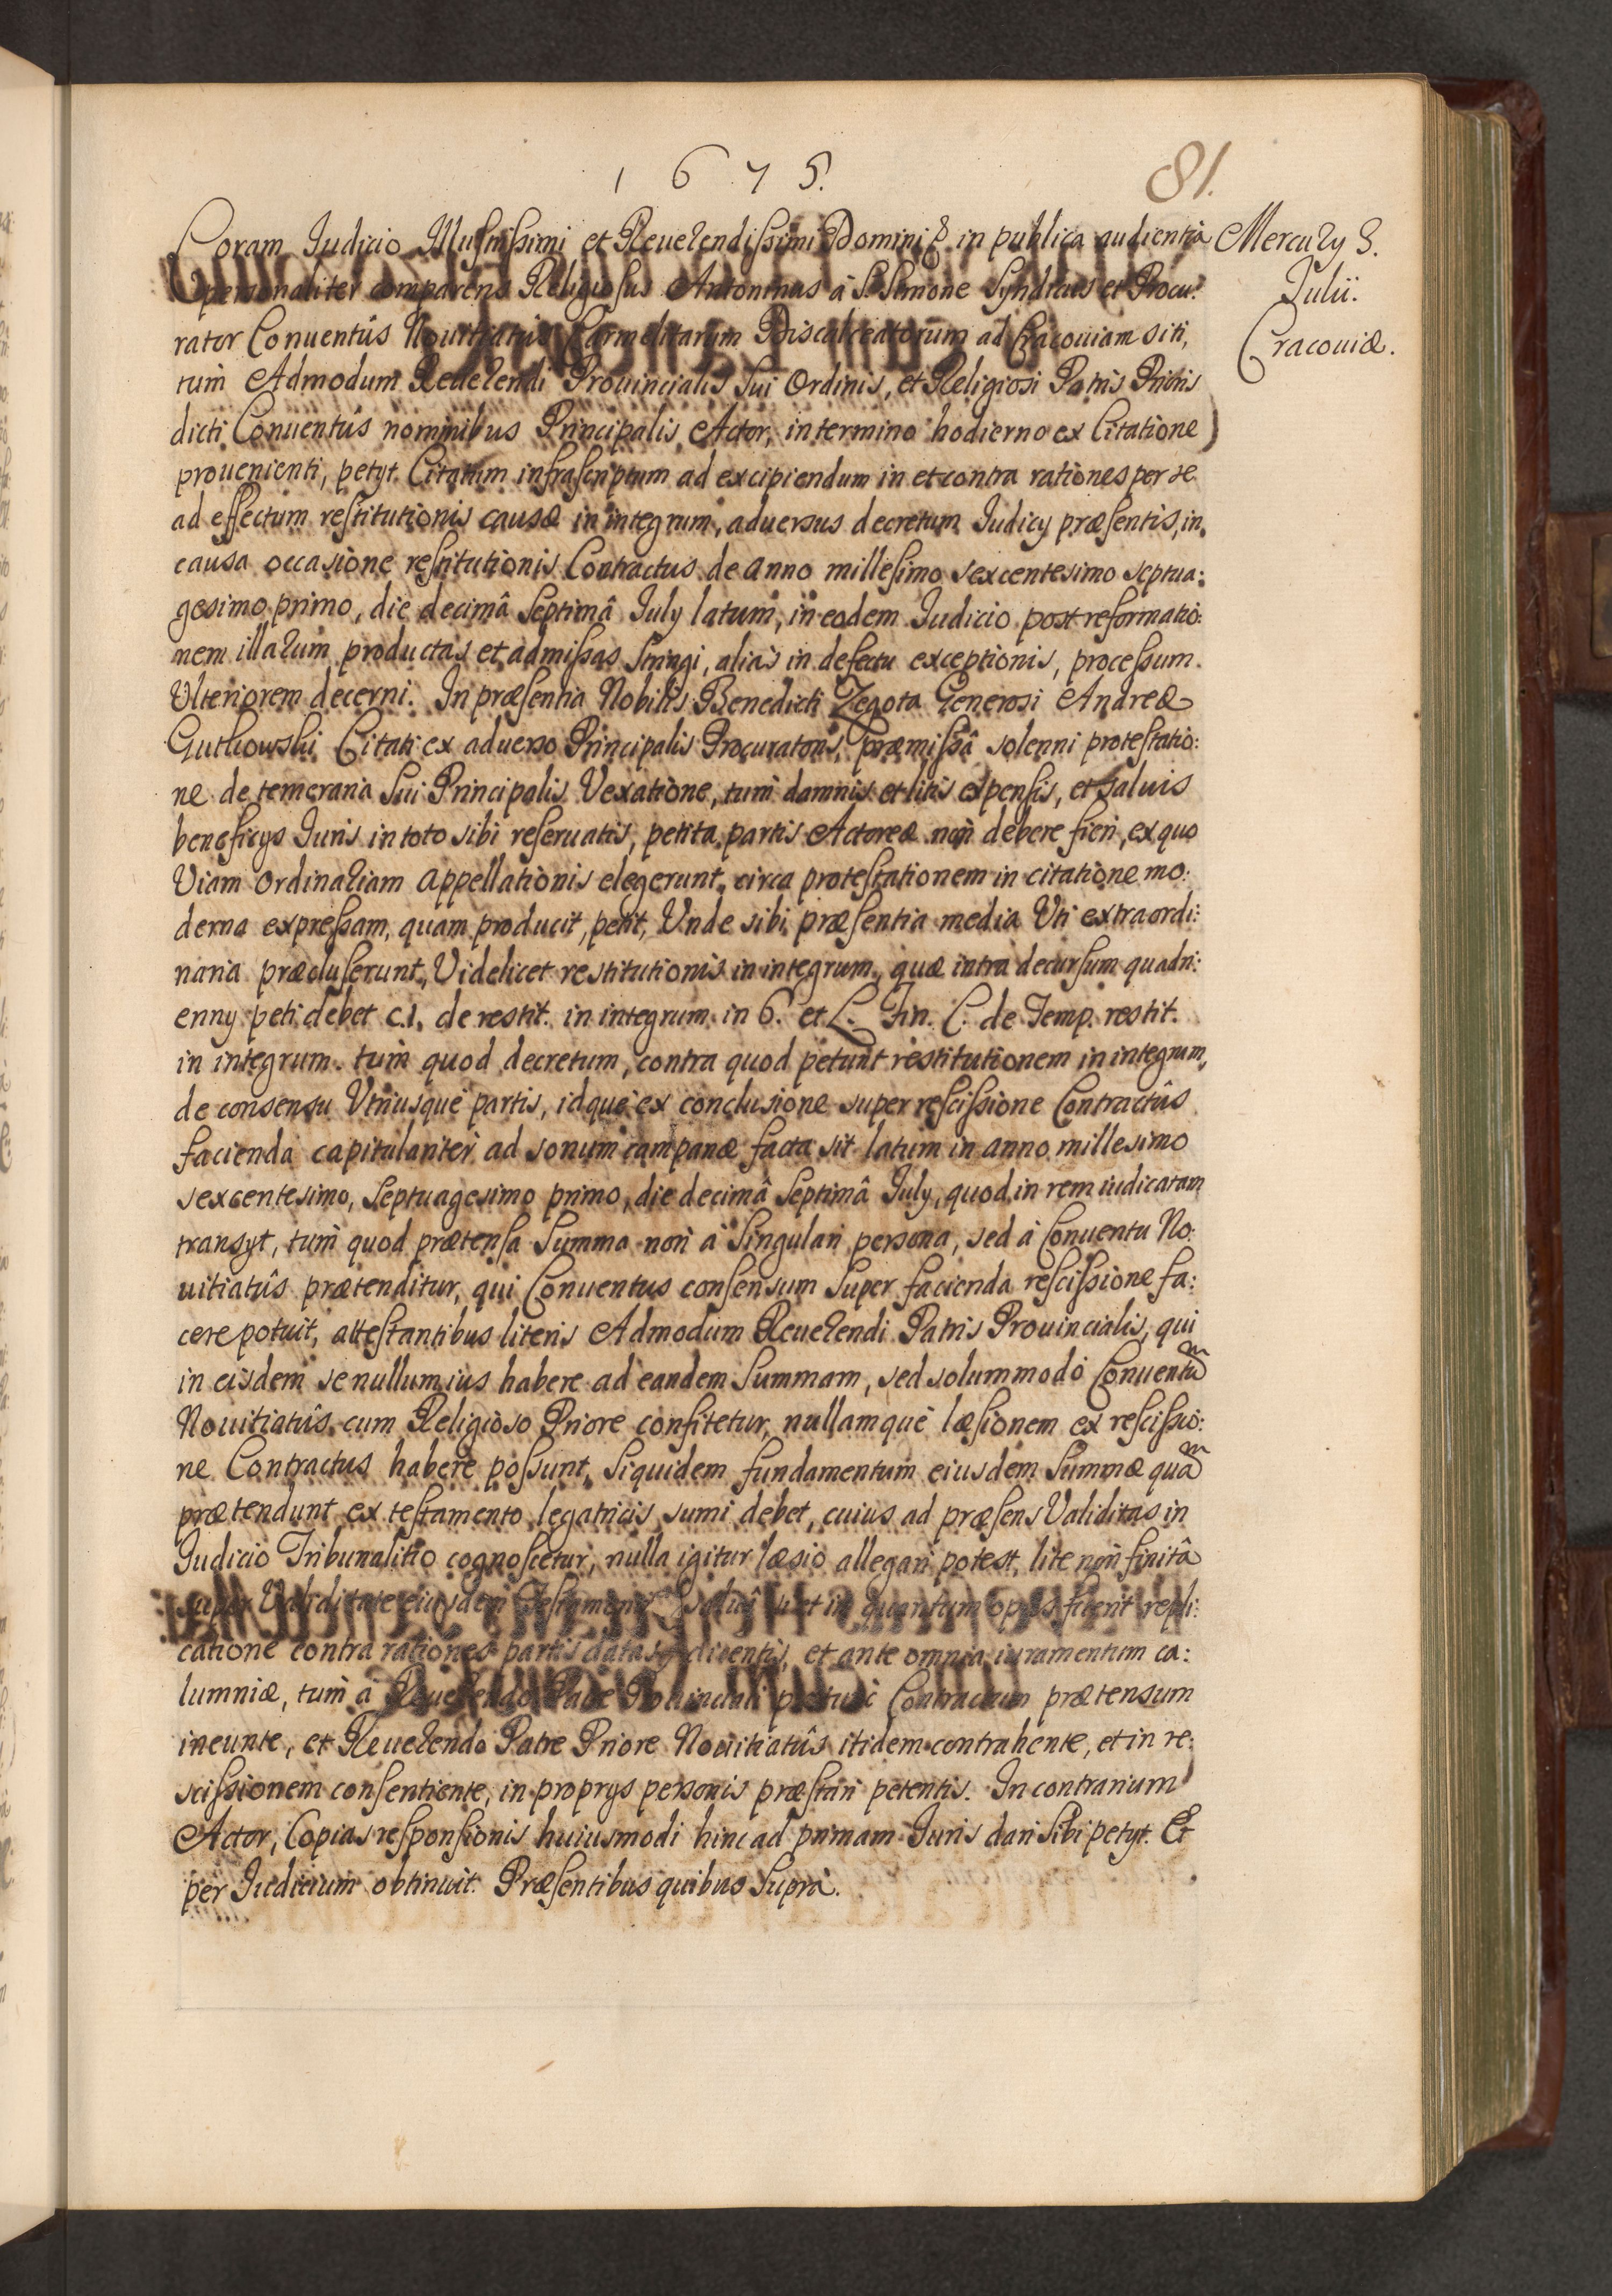 1675.
81.
Mercury 3.
Julii.
Cracouiæ.
Coram Judicio Illustrissimi et Reuerendissimi Domini in publica audientia
personaliter comparens Religiosus Antoninus à S. Simone Syndicus et Procu:
rator Conuentûs Nouitiatûs Carmelitarum Discalceatorum ad Cracouiam siti,
tum Admodum Reuerendi Prouincialis sui Ordinis, et Religiosi Patris Prioris
dicti Conuentûs nominibus Principalis Actor, in termino hodierno ex Citatione
prouenienti, petyt Citatum infrascriptum ad excipiendum in et contra rationes per se
ad effectum restitutionis causæ in integrum, aduersus decretum Judicy præsentis, in
causa occasione restitutionis Contractus de anno millesimo sexcentesimo septua:
gesimo primo, die decimâ septimâ July latum, in eodem Judicio post reformatio:
nem illarum productas et admissas stringi, alias in defectu exceptionis, processum
Ulteriorem decerni. In præsentia Nobilis Benedicti Zegota Generosi Andreæ
Gutkowski Citati ex aduerso Principalis Procuratoris, præmissâ solenni protestatio:
ne de temeraria sui Principalis Vexatione, tum damnis et litis expensis, et saluis
beneficys Juris in toto sibi reseruatis, petita partis Actoreæ non debere fieri, ex quo
Viam ordinariam appellationis elegerunt, circa protestationem in citatione mo:
derna expressam, quam producit, petit, Unde sibi præsentia media Uti extraordi:
naria præcluserunt, Videlicet restitutionis in integrum, quæ intra decursum quadri:
enny peti debet c.1. de restit. in integrum in 6. et L. Fin. C. de Temp. restit.
in integrum. tum quod decretum, contra quod petunt restitutionem in integrum,
de consensu Utriusque partis, idque ex conclusione super rescissione Contractûs
facienda capitulariter ad sonum campanæ facta sit latum in anno millesimo
sexcentesimo, septuagesimo primo, die decimâ septimâ July, quod in rem iudicatam
transyt, tum quod prætensa summa non à singulari persona, sed à Conuentu No:
uitiatûs prætenditur, qui Conuentus consensum super facienda rescissione fa:
cere potuit, attestantibus literis Admodum Reuerendi Patris Prouincialis, qui
in eisdem se nullum ius habere ad eandem summam, sed solummodo Conuentũ
Nouitiatûs cum Religioso Priore confitetur, nullamque læsionem ex rescissio:
ne Contractus habere possunt, siquidem fundamentum eiusdem summæ quã
prætendunt ex testamento legatricis sumi debet, cuius ad præsens Validitas in
Judicio Tribunalitio cognoscetur, nulla igitur læsio allegari potest, lite non finitâ
super Validitate eiusdem Testamenti Saluâ si et in quantum opus fuerit repli:
catione contra rationes partis datas, dicentis, et ante omnia iuramentum ca:
lumniæ, tum à Reuerendo Patre Prouinciali Contractum prætensum
ineunte, et Reuerendo Patre Priore Nouitiatûs itidem contrahente, et in re:
scissionem consentiente, in proprys personis præstari petentis. In contrarium
Actor, Copias responsionis huiusmodi hinc ad primam Juris dari sibi petyt. Et
per Judicium obtinuit. Præsentibus quibus supra.